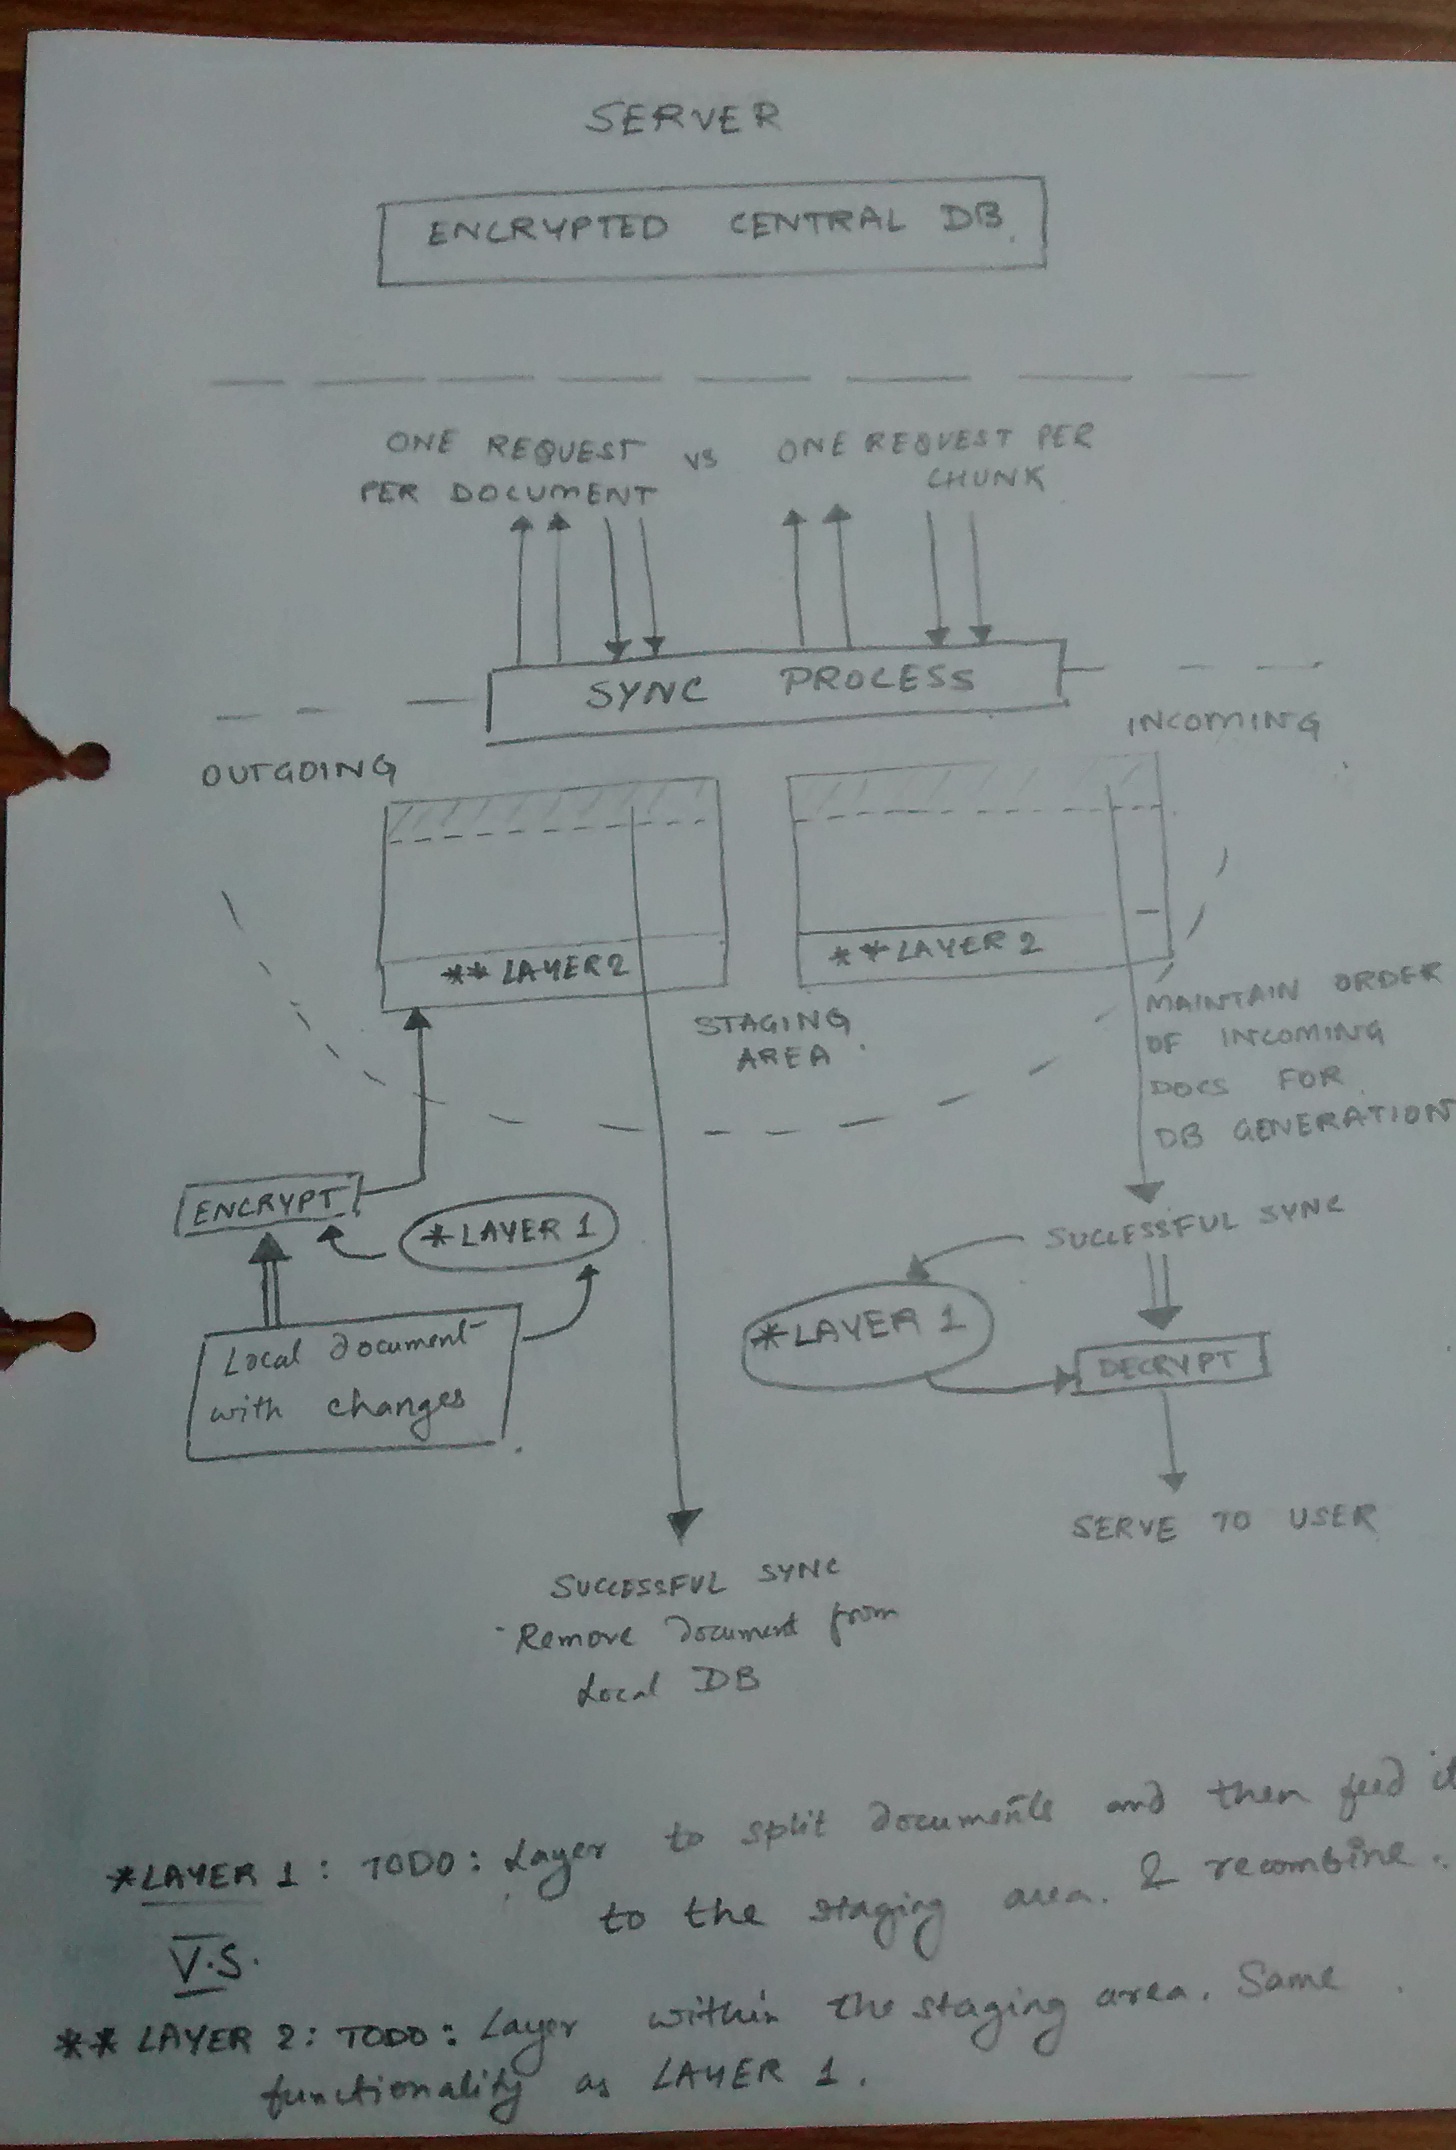 SERVER
ENCRYPTED CENTRAL DB.
ONE REQUEST
PER DOCUMENT
vs
ONE REQUEST PER
CHUNK
SYNC PROCESS
OUTGOING
INCOMING
** LAYER 2
** LAYER 2
STAGING
AREA
MAINTAIN ORDER
OF INCOMING
DOCS FOR
DB GENERATION
ENCRYPT
*LAYER 1
SUCCESSFUL SYNC
Local document
with changes
*LAYER 1
DECRYPT
SERVE TO USER
SUCCESSFUL SYNC
- Remove document from
Local DB
*LAYER 1: TODO: Layer to split documents and then feed it
to the staging area. & recombine.
V.S.
** LAYER 2: TODO: Layer within the staging area. Same
functionality as LAYER 1.